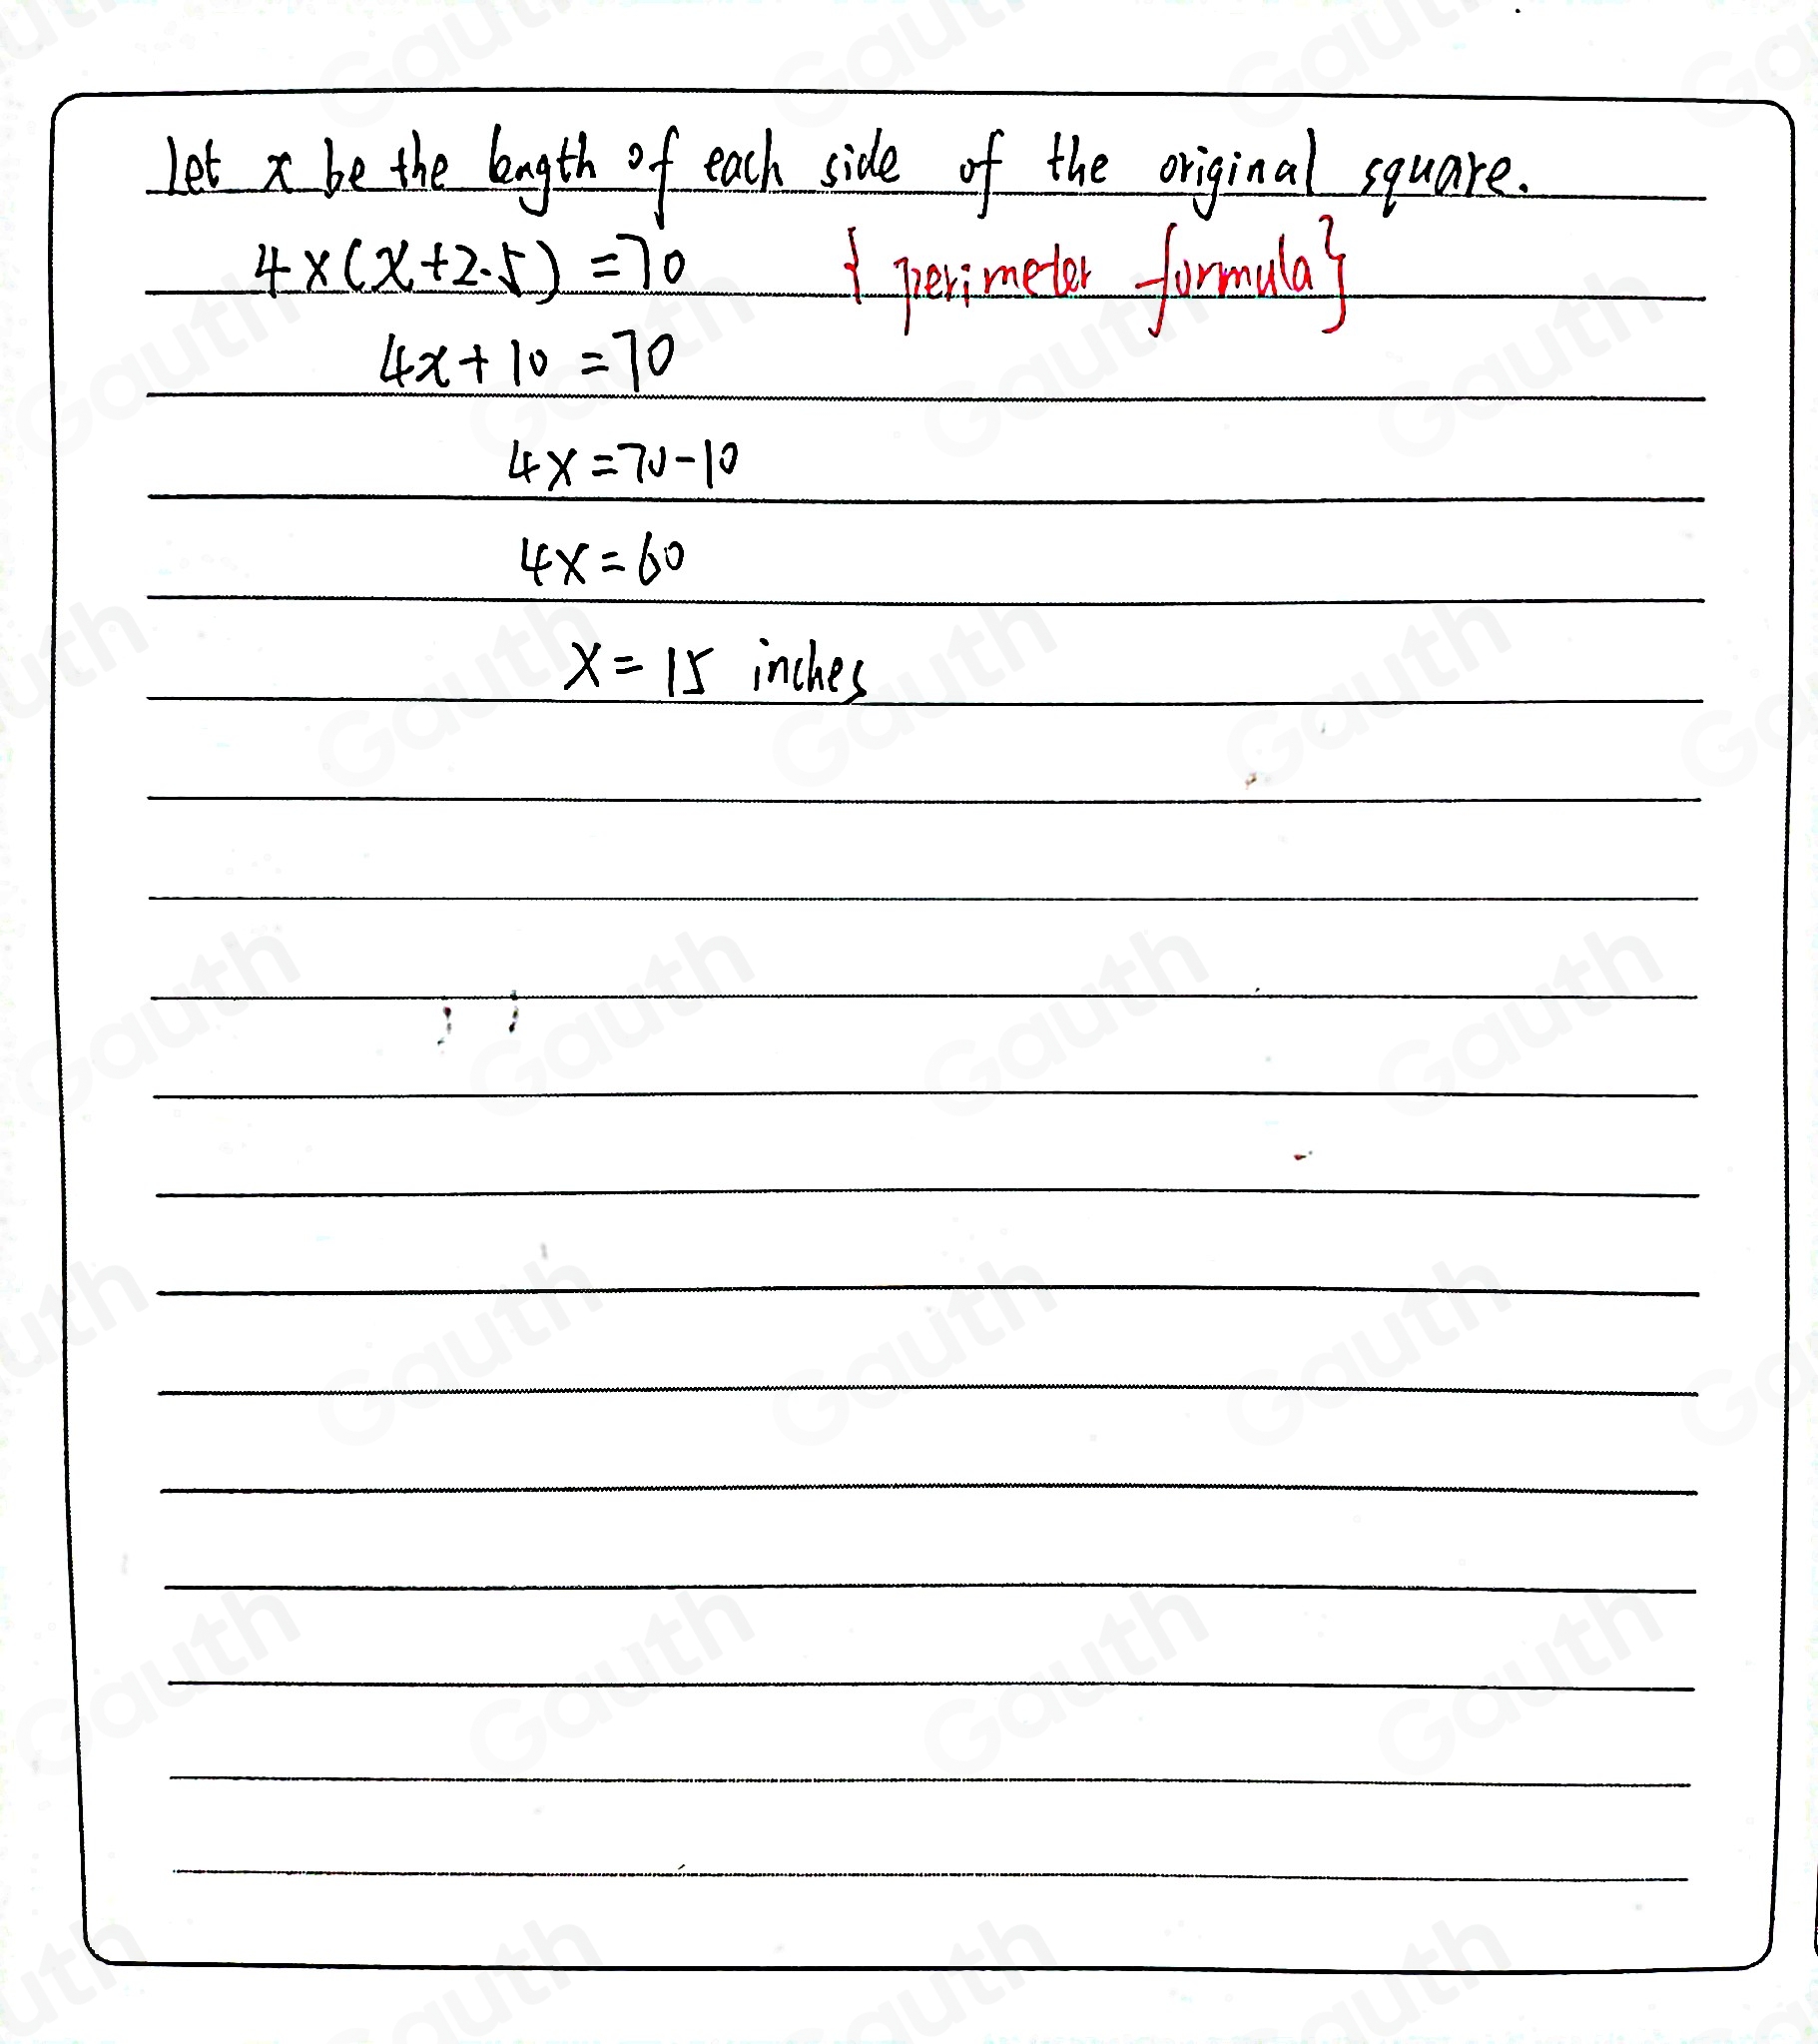 let x be the length of each side of the original square.
4×(x+2.5)=70 {perimeter formula}
4x+10=70
4x=70-10
4x=60
x=15 inches